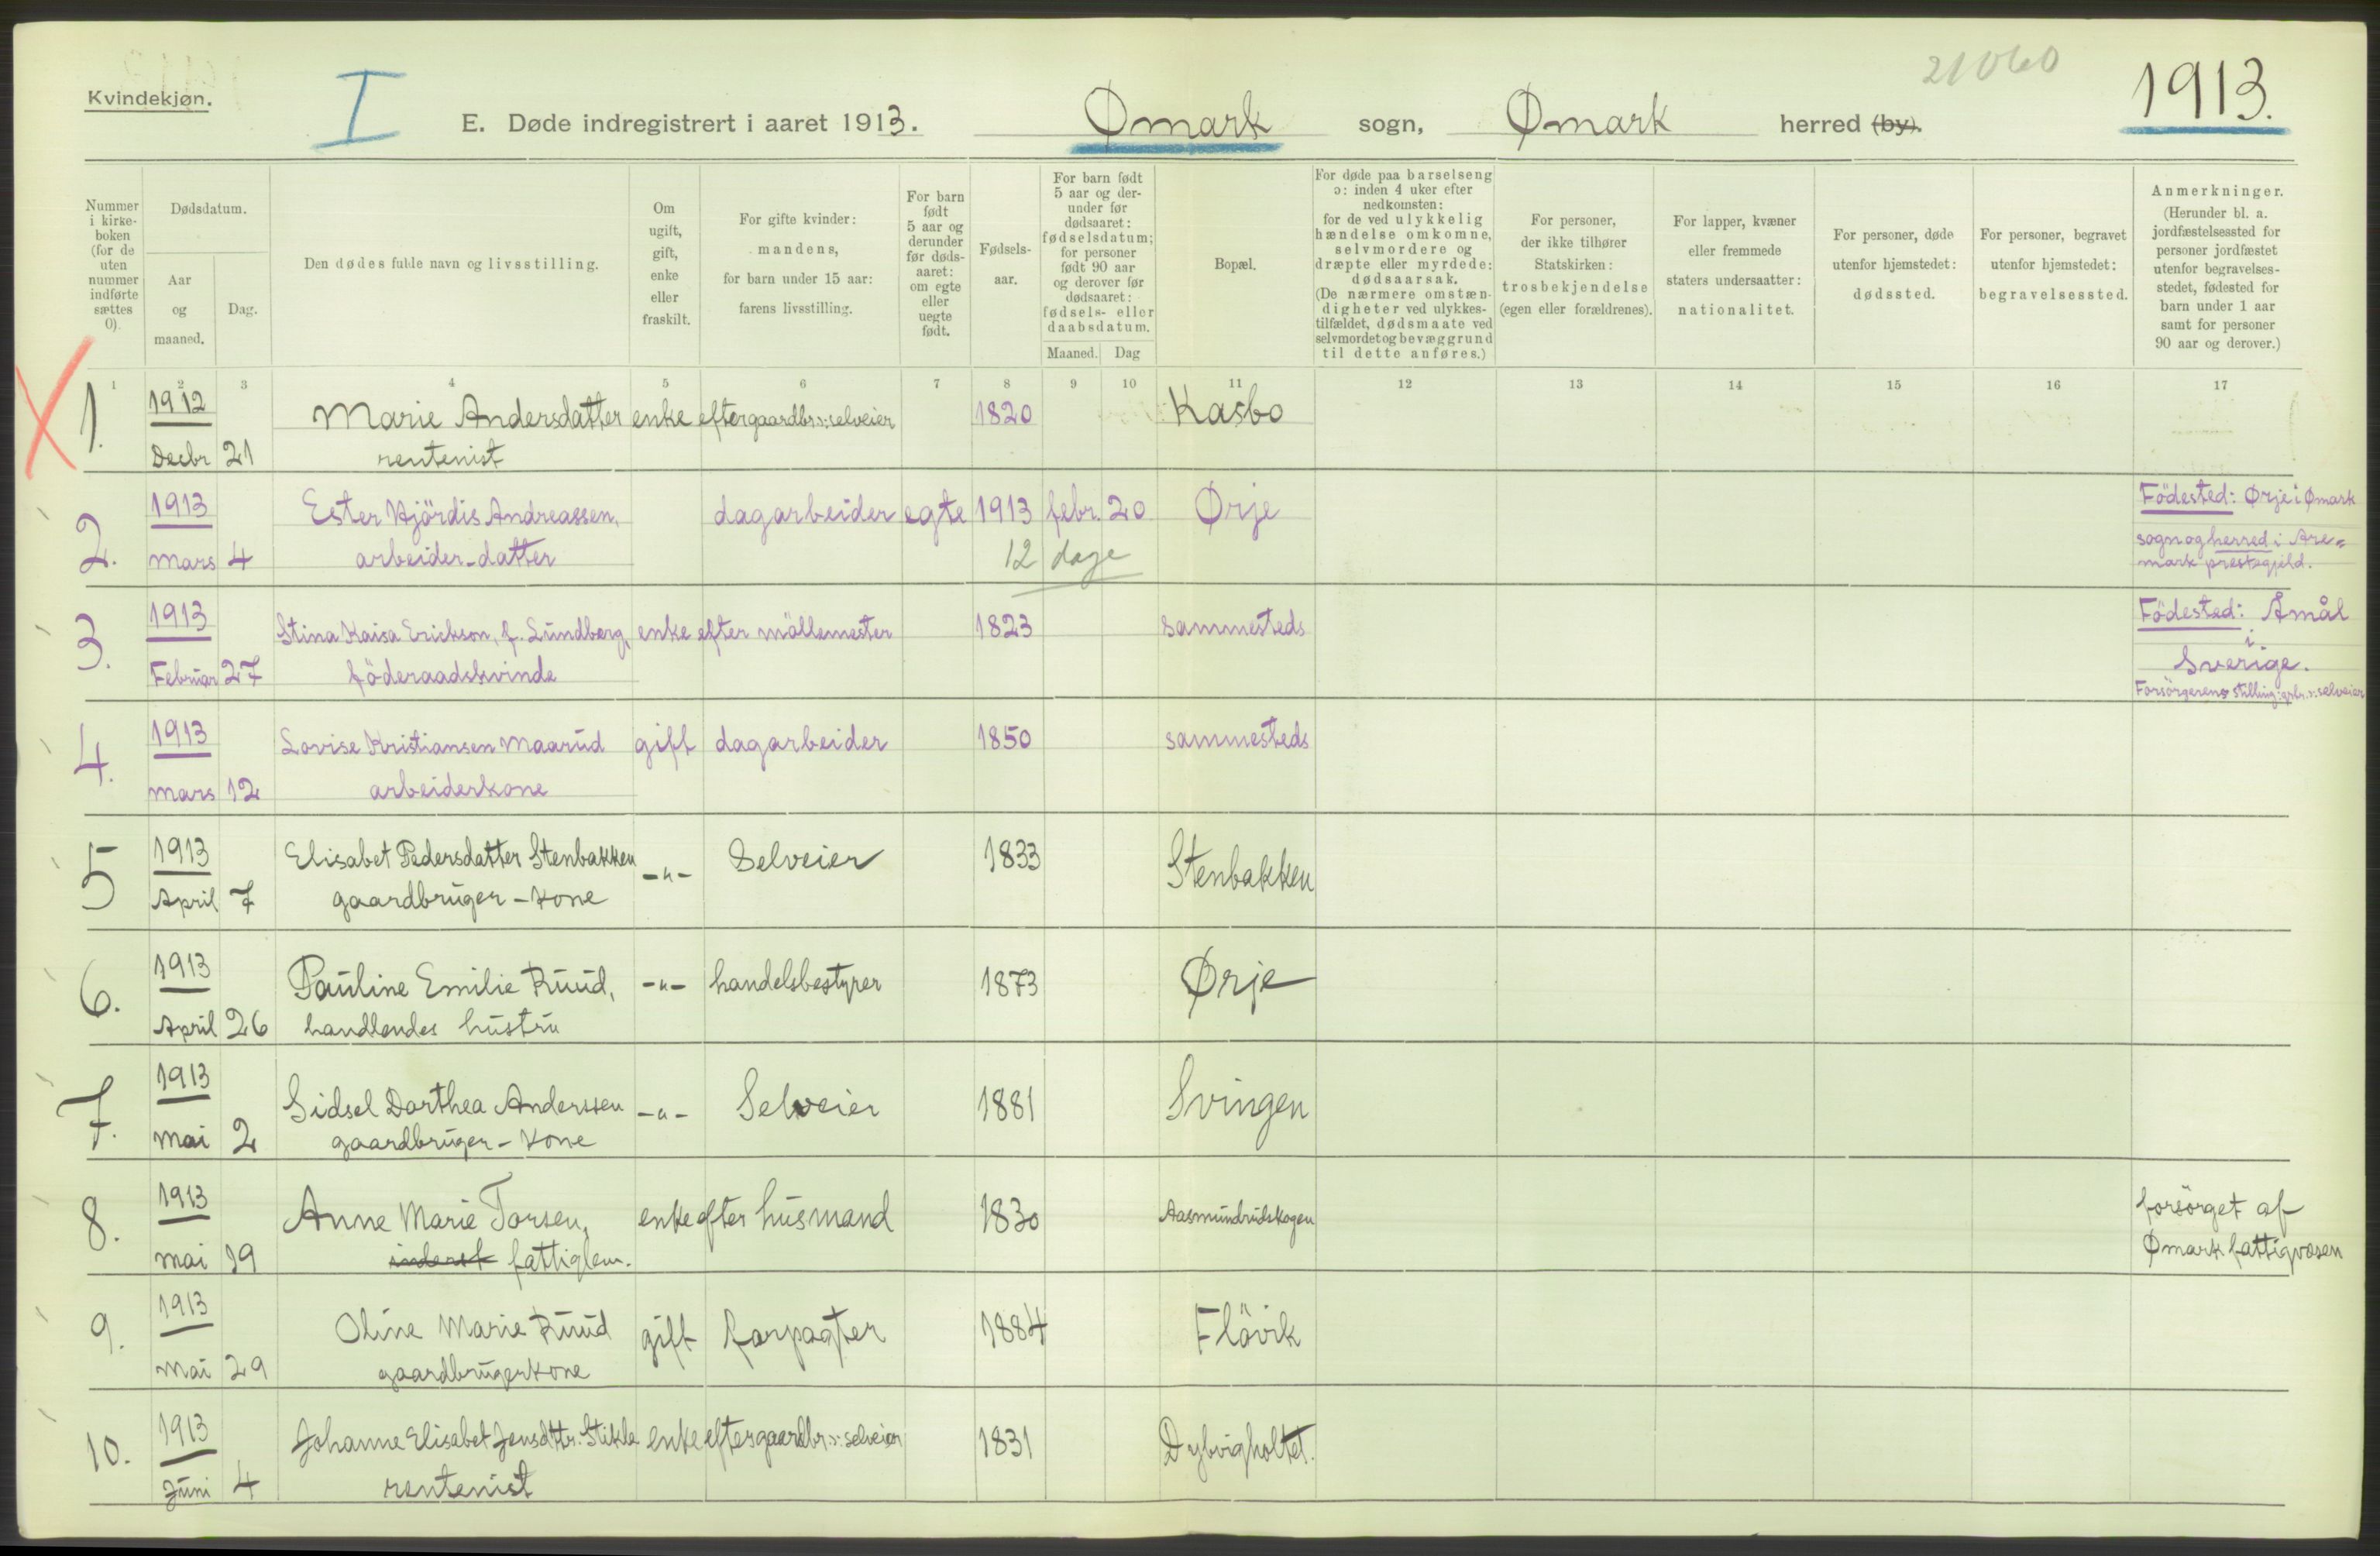 21060
Kvindekjøn.
I
E. Døde indregistrert i aaret 1913. Ømark sogn, Ømark herred (by).
1913.
Nummer i kirke-boken (for de uten nummer indførte sættes 0).
Dødsdatum.
Aar og maaned.
Dag.
Den dødes fulde navn og livsstilling.
Om ugift, gift, enke eller fraskilt.
For gifte kvinder: mandens, for barn under 15 aar: farens livsstilling.
For barn født 5 aar og derunder før døds-aaret: om egte eller uegte født.
Fødsels-aar.
For barn født 5 aar og der-under før dødsaaret: fødselsdatum; for personer født 90 aar og derover før dødsaaret: fødsels- eller daabsdatum.
Maaned. Dag
Bopæl.
For døde paa barselseng ɔ: inden 4 uker efter nedkomsten: for de ved ulykkelig hændelse omkomne, selvmordere og dræpte eller myrdede: dødsaarsak. (De nærmere omstæn-digheter ved ulykkes-tilfældet, dødsmaate ved selvmordet og bevæggrund til dette anføres.)
For personer, der ikke tilhører Statskirken: trosbekjendelse (egen eller forældrenes).
For lapper, kvæner eller fremmede staters undersaatter: nationalitet.
For personer, døde utenfor hjemstedet: dødssted.
For personer, begravet utenfor hjemstedet: begravelsessted.
Anmerkninger. (Herunder bl. a. jordfæstelsessted for personer jordfæstet utenfor begravelses-stedet, fødested for barn under 1 aar samt for personer 90 aar og derover.)
1 2 3 4 5 6 7 8 9 10 11 12 13 14 15 16 17
1. 1912 Marie Andersdatter enke efter gaardbr. ɔ: selveier 1820 Kasbo
Decbr 21 rentenist
2. 1913 Ester Hjördis Andreassen, dagarbeider egte 1913 febr. 20 Ørje Födested: Ørje i Ømark
mars 4 arbeider-datter 12 dage sogn og herred i Are=
mark prestegjeld.
3. 1913 Stina Kaisa Erickson, f. Lundberg, enke efter möllemester 1823 sammesteds Födested: Åmål
i
Februar 27 föderaadskvinde Sverige.
Forsörgerens stilling: grbr. ɔ: selveier
4. 1913 Lovise Kristiansen Maarud gift dagarbeider 1850 sammesteds
mars 12 arbeiderkone
5 1913 Elisabet Pedersdatter Stenbakken -"- Selveier 1833 Stenbakken
April 7 gaardbruger-kone
6. 1913 Pauline Emilie Ruud, -"- handelsbestyrer 1873 Ørje
April 26 handlendes hustru
7. 1913 Sidsel Dorthea Anderssen -"- Selveier 1881 Svingen
Mai 2 gaardbruger-kone
8. 1913 Anne Marie Torsen, enke efter husmand 1830 Aasmundrudskogen forsörget af
mai 19 inderst fattiglem. Ømark fattigvæsen
9. 1913 Oline Marie Ruud gift forpagter 1884 Flövik
Mai 29 gaardbrugerkone
10. 1913 Johanne Elisabet Jensdttr. Stikla enke efter gaardbr. ɔ: selveier 1831 Dybvigholtet.
Juni 4 rentenist